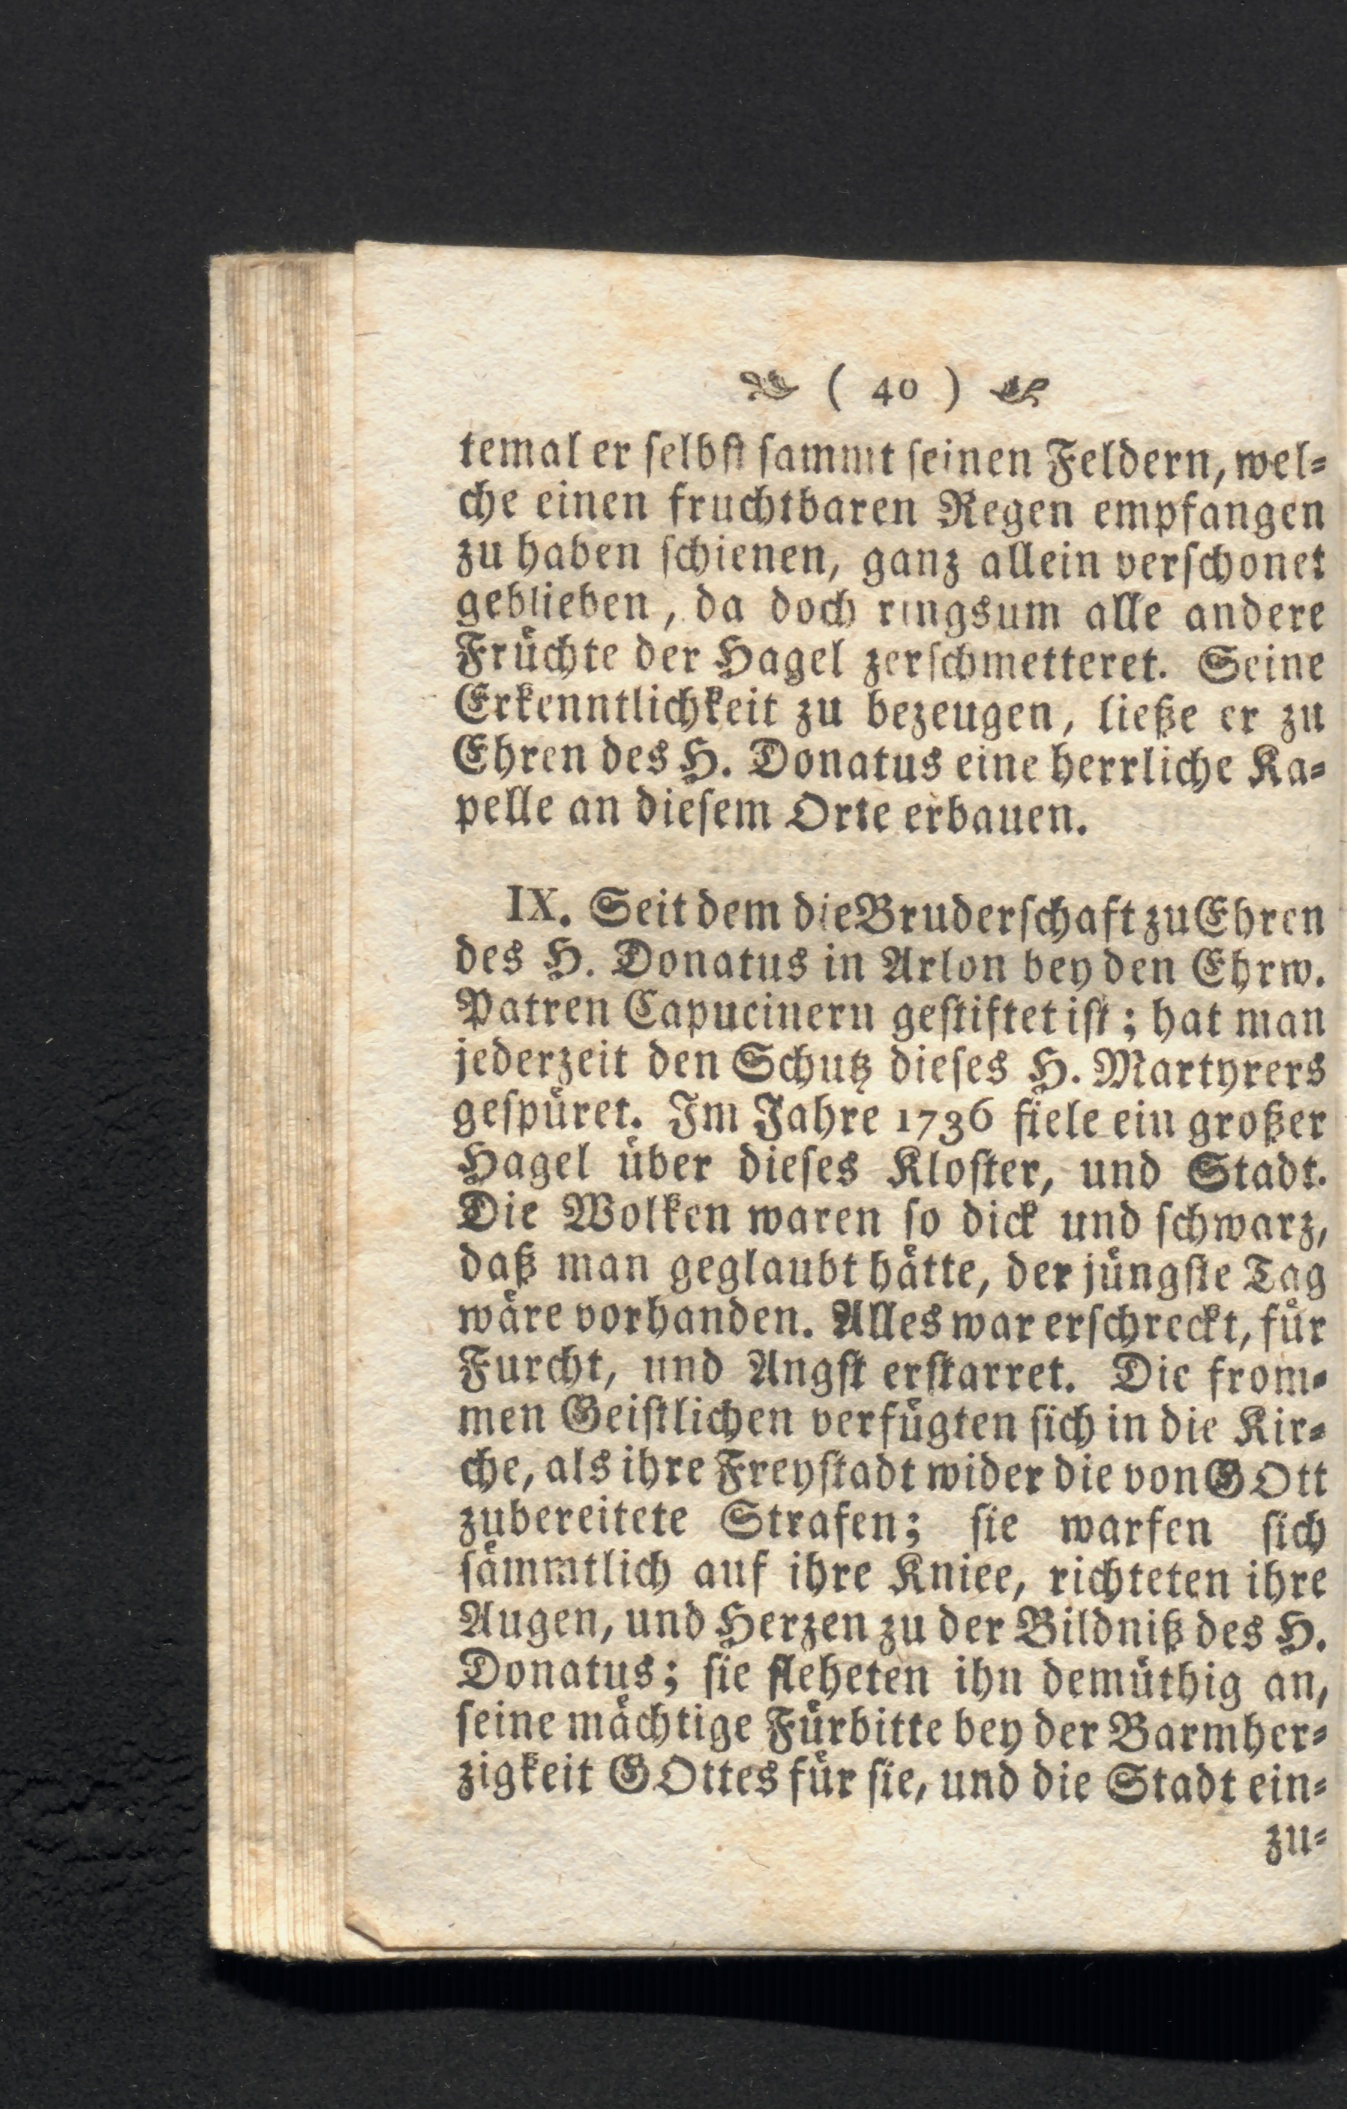 ( 40 )
temal er selbst sammt seinen Feldern, wel-
che einen fruchtbaren Regen empfangen
zu haben schienen, ganz allein verschonet
geblieben, da doch ringsum alle andere
Früchte der Hagel zerschmetteret. Seine
Erkenntlichkeit zu bezeugen, ließe er zu
Ehren des H. Donatus eine herrliche Ka-
pelle an diesem Orte erbauen.
IX. Seit dem die Bruderschaft zu Ehren
des H. Donatus in Arlon bey den Ehrw.
Patren Capucinern gestiftet ist; hat man
jederzeit den Schutz dieses H. Martyrers
gespüret. Im Jahre 1736 fiele ein großer
Hagel über dieses Kloster, und Stadt.
Die Wolken waren so dick und schwarz,
daß man geglaubt hätte, der jüngste Tag
wäre vorhanden. Alles war erschreckt, für
Furcht, und Angst erstarret. Die from-
men Geistlichen verfügten sich in die Kir-
che, als ihre Freystadt wider die von GOtt
zubereitete Strafen; sie warfen sich
sämmtlich auf ihre Kniee, richteten ihre
Augen, und Herzen zu der Bildniß des H.
Donatus; sie fleheten ihn demüthig an,
seine mächtige Fürbitte bey der Barmher-
zigkeit GOttes für sie, und die Stadt ein-
zu-